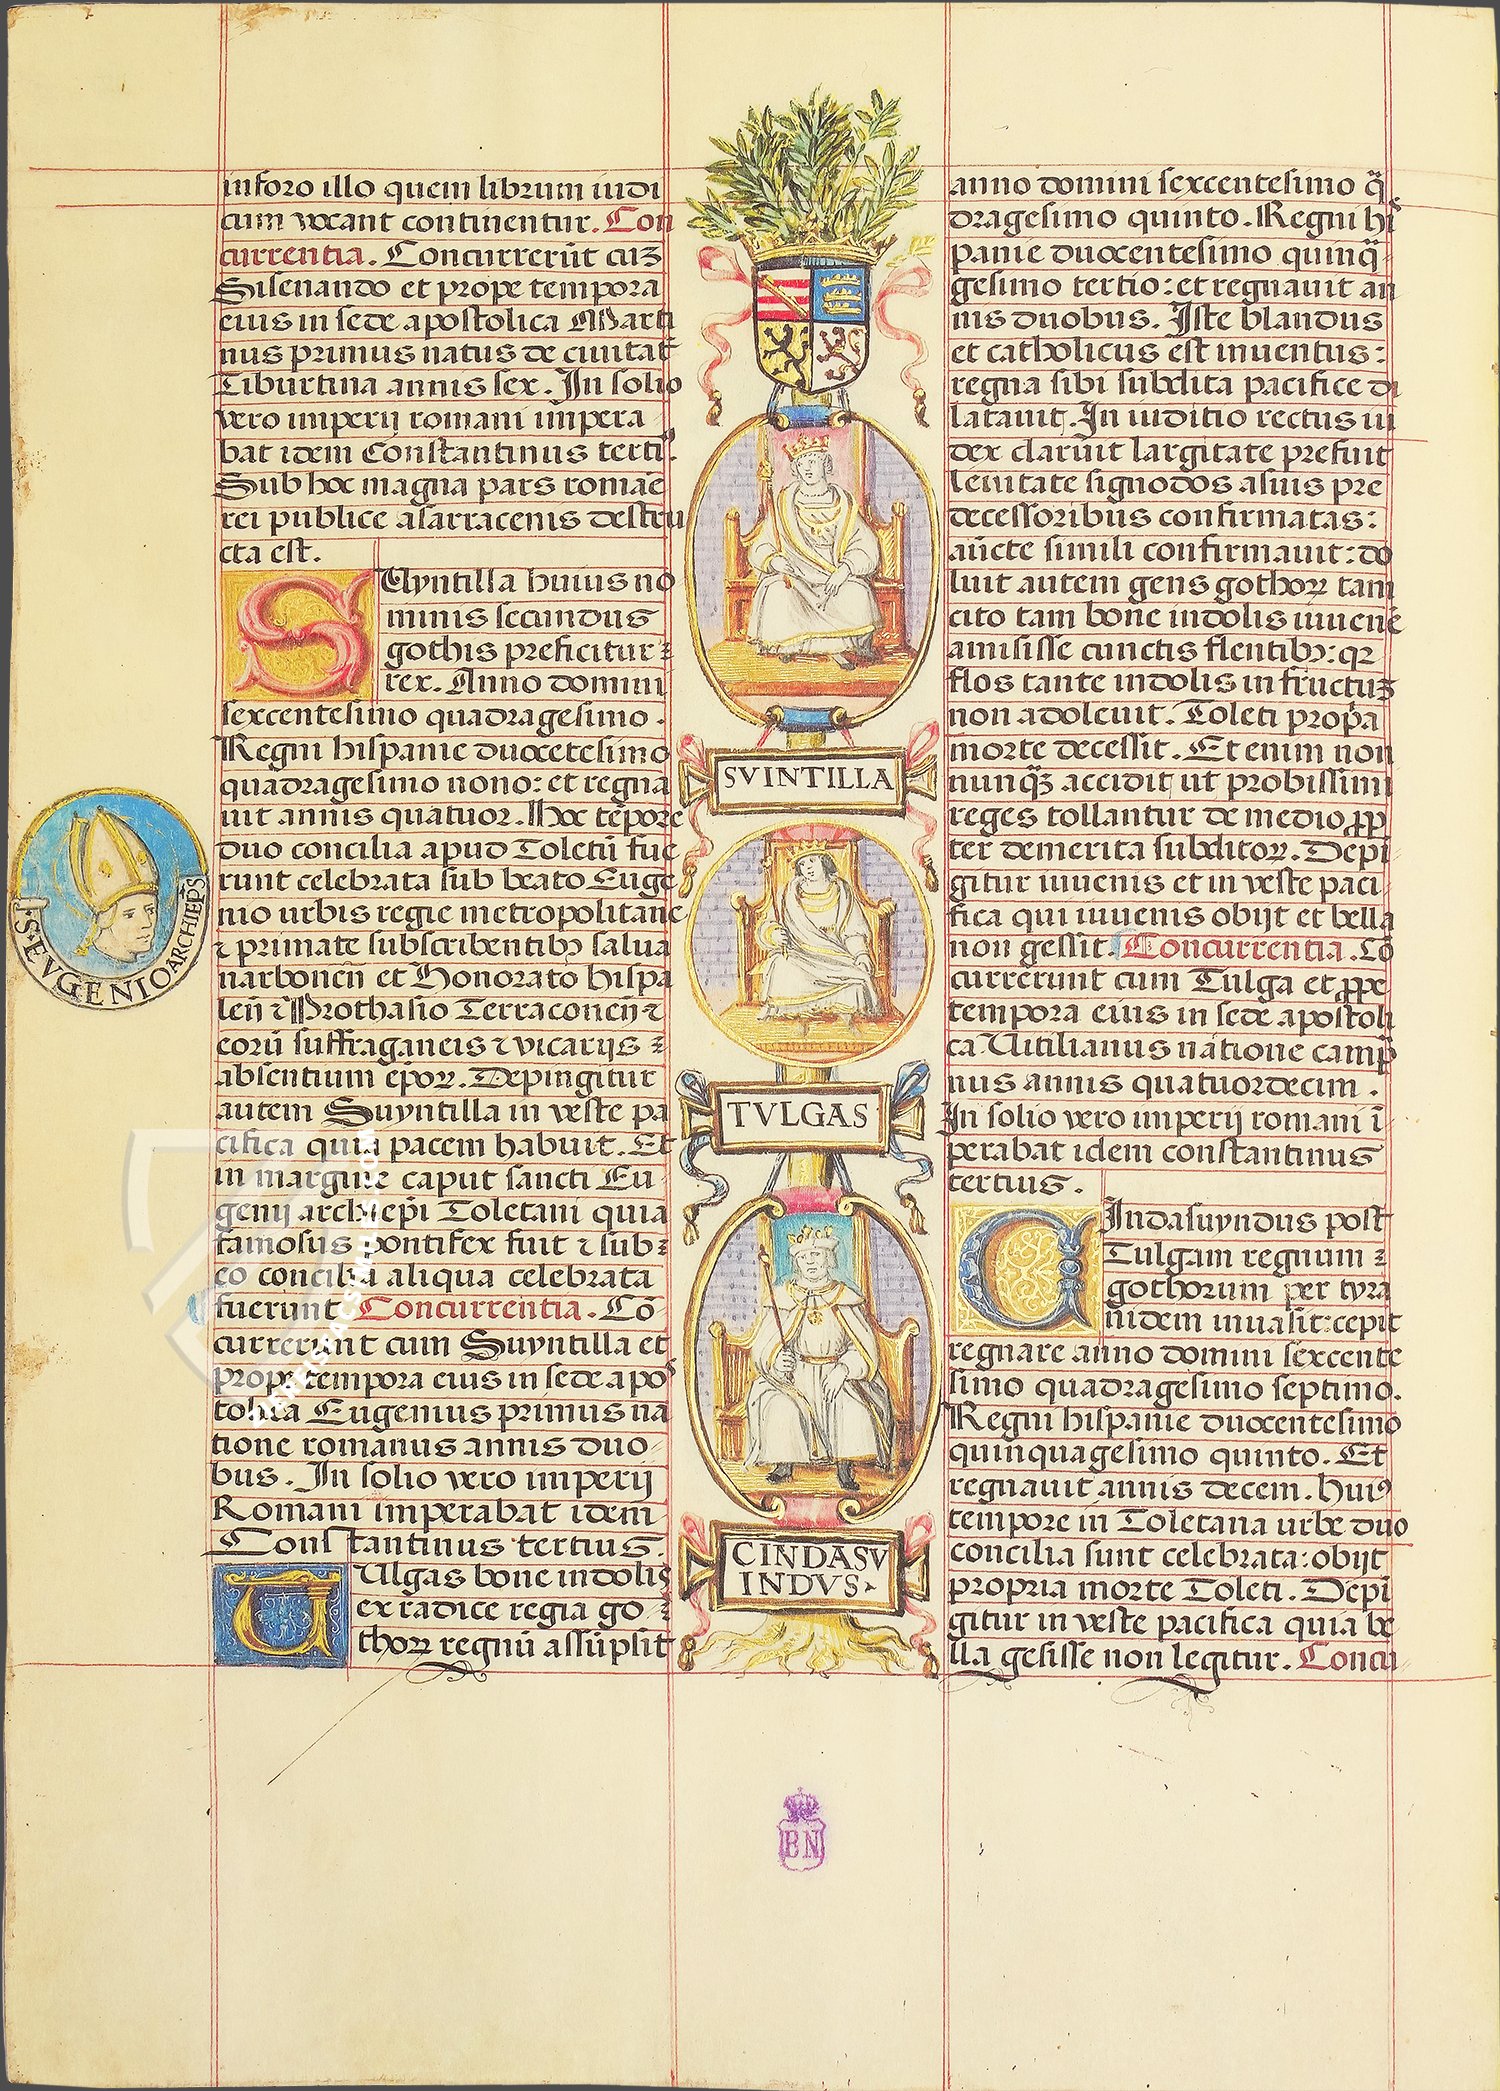 inforo illo quem librum iudi
cum vocant continentur. Con
currentia. Concurrerūt cuʒ
Sisenando et prope tempora
eius in sede apostolica Marti
nus primus natus de ciuitat̄
Tiburtina annis sex. In solio
vero imperij romani impera
bat idem Constantinus terti⁹.
Sub hoc magna pars romāe
rei publice asarracenis destru
cta est.
SUyntilla huius no
minis secundus
gothis preficitur
rex. Anno domini
sexcentesimo quadragesimo.
Regni hispanie duocētesimo
quadragesimo nono: et regna
uit annis quatuor. Hoc tēpore
duo concilia apud Toletū fue
runt celebrata sub beato Euge
nio urbis regie metropolitane
⁊ primate subscribentibꝫ salua
narbonen̄ et Honorato hispa
len̄ ⁊ Prothasio Terraconen̄ ⁊
eorū suffraganeis ⁊ vicarijs
absentium ep̄oꝝ. Depingitur
autem Suyntilla in veste pa
cifica quia pacem habuit. Et
in margine caput sancti Eu
genij archiep̄i Toletani quia
famosus pontifex fuit ⁊ sub
eo concilia aliqua celebrata
fuerunt Concurrentia. Cō
currerunt cum Suyntilla et
prope tempora eius in sede apo
tolica Eugenius primus na
tione romanus annis duo
bus. In solio vero imperij
Romani imperabat idem
Constantinus tertius.
UUlgas bone indolis
ex radice regia go
thoꝝ regnū assūpsit
S. EVGENIO ARCHIEP̄S
SVINTILLA
TVLGAS
CINDASV
INDVS
BN
anno domini sexcentesimo q̄
dragesimo quinto. Regni hi
panie duocentesimo quinq̄
gesimo tertio: et regnauit an
nis duobus. Iste blandus
et catholicus est inuentus:
regna sibi subdita pacifice di
latauit. In iuditio rectus iu
dex claruit largitate prefuit
leuitate signodos asuis pre
decessoribus confirmatas:
aūcte simili confirmauit: do
luit autem gens gothoꝝ tam
cito tam bone indolis iuuenē
amisisse cunctis flentibꝫ: qꝛ
flos tante indolis in fructuʒ
non adoleuit. Toleti prop̄a
morte decessit. Et enim non
nunq̄ʒ accidit ut probissimi
reges tollantur de medio ꝓp
ter demerita subditoꝝ. Depī
gitur iuuenis et in veste paci
fica qui iuuenis obijt et bella
non gessit. Concurrentia. Cō
currerunt cum Tulga et ꝓpe
tempora eius in sede apostoli
ca Uitilianus natione camp̄
nus annis quatuordecim.
In solio vero imperij romani ī
perabat idem constantinus
tertius.
CIndasuyndus post
Tulgam regnum
gothorum per tyra
nidem inuasit: cepit
regnare anno domini sexcente
simo quadragesimo septimo.
Regni hispanie duocentesimo
quinquagesimo quinto. Et
regnauit annis decem. hui⁹
tempore in Toletana urbe duo
concilia sunt celebrata: obijt
propria morte Toleti. Depī
gitur in veste pacifica quia be
lla gesisse non legitur. Concu